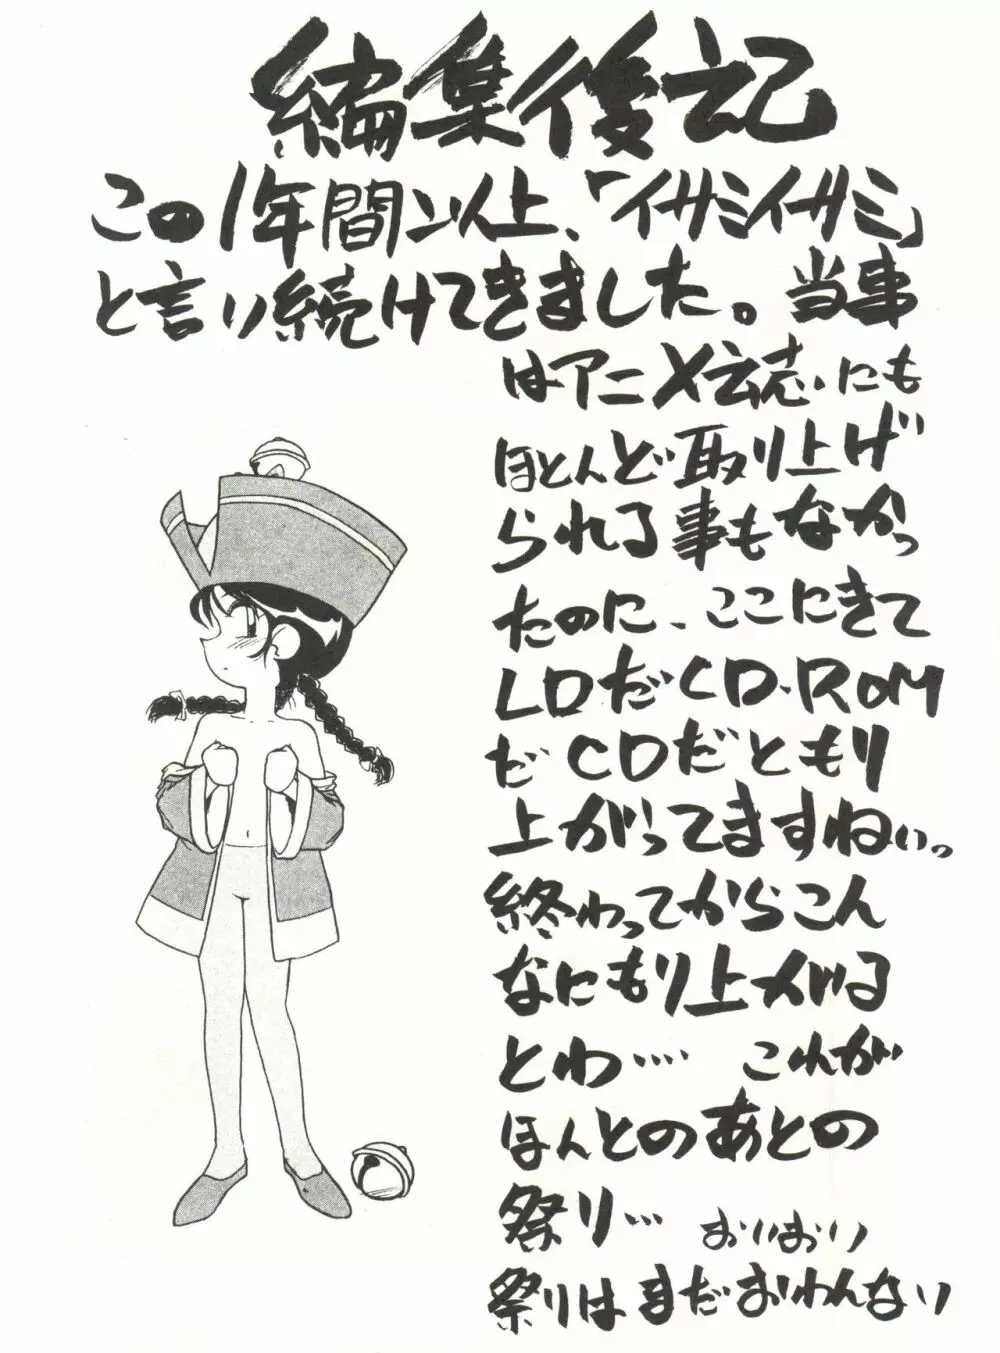 編集後記
この1年間以上、「イサミイサミ」
と言い続けてきました。当事
はアニメ雑誌にも
ほとんど取り上げ
られる事もなかっ
たのに、ここにきて
LDだCD-ROM
だCDだともり
上がってますねぃっ。
終わってからこん
なにもり上がる
とわ… これが
ほんとのあとの
祭り… おいおい
祭りはまだおわんない